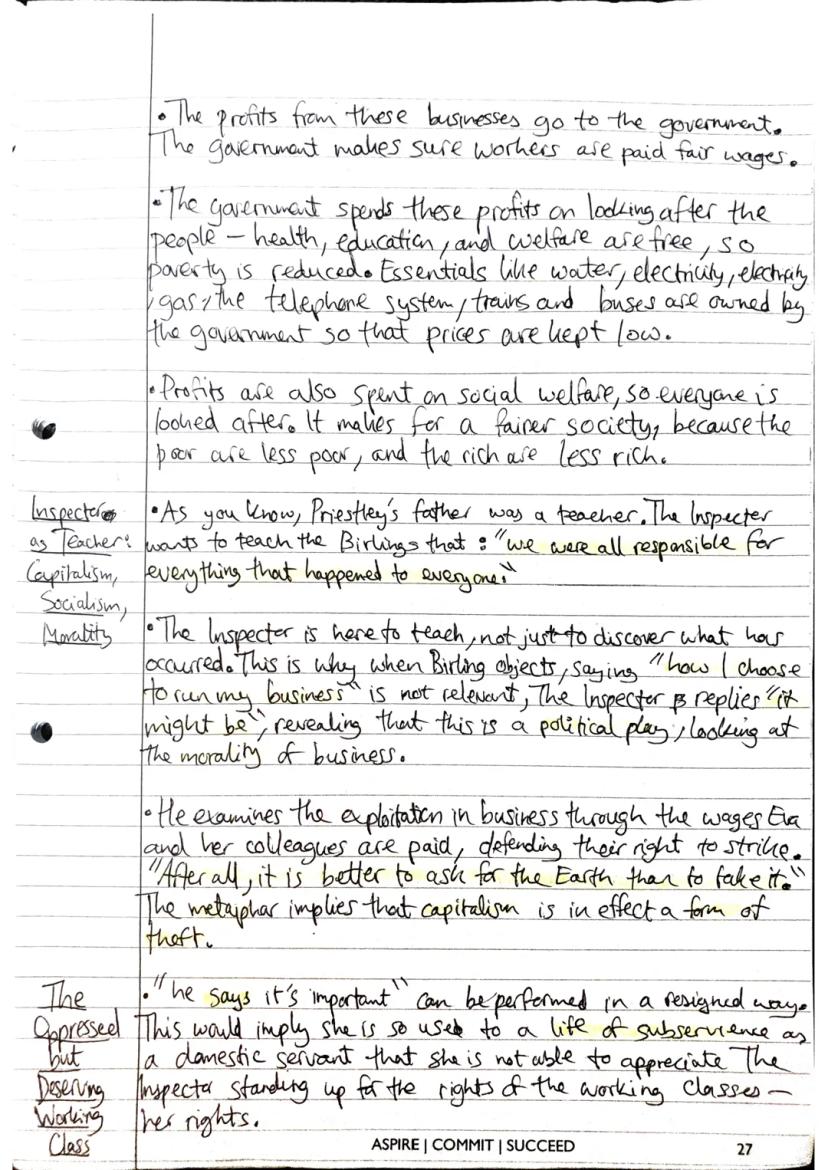 • The profits from these businesses go to the government.
The government makes sure workers are paid fair wages.
• The government spends these profits on looking after the
people – health, education, and welfare are free, so
poverty is reduced. Essentials like water, electricity, electricity
, gas, the telephone system, trains and buses are owned by
the government so that prices are kept low.
• Profits are also spent on social welfare, so everyone is
looked after. It makes for a fairer society, because the
poor are less poor, and the rich are less rich.
Inspector
as Teacher:
Capitalism,
Socialism,
Morality
• As you know, Priestley's father was a teacher. The Inspector
wants to teach the Birlings that : "we were all responsible for
everything that happened to everyone."
• The Inspector is here to teach, not just to discover what has
occurred. This is why when Birling objects, saying "how I choose
to run my business" is not relevant, The Inspector replies "it
might be", revealing that this is a political play, looking at
the morality of business.
• He examines the exploitation in business through the wages Eva
and her colleagues are paid, defending their right to strike.
"After all, it is better to ask for the Earth than to take it."
The metaphor implies that capitalism is in effect a form of
theft.
The
Oppressed
but
Deserving
Working
Class
• "he says it's important" can be performed in a resigned way.
This would imply she is so used to a life of subservience as
a domestic servant that she is not able to appreciate The
Inspector standing up for the rights of the working classes –
her rights.
ASPIRE | COMMIT | SUCCEED
27